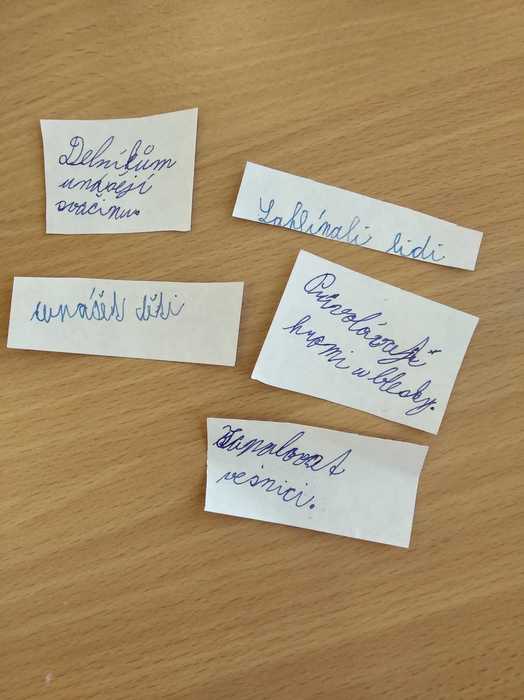 Delníkům
unášejí
svačinu.
Zahlínali lidi
unášet děti
Přivolávají
hromi a blesky.
Zapalovat
vesnici.